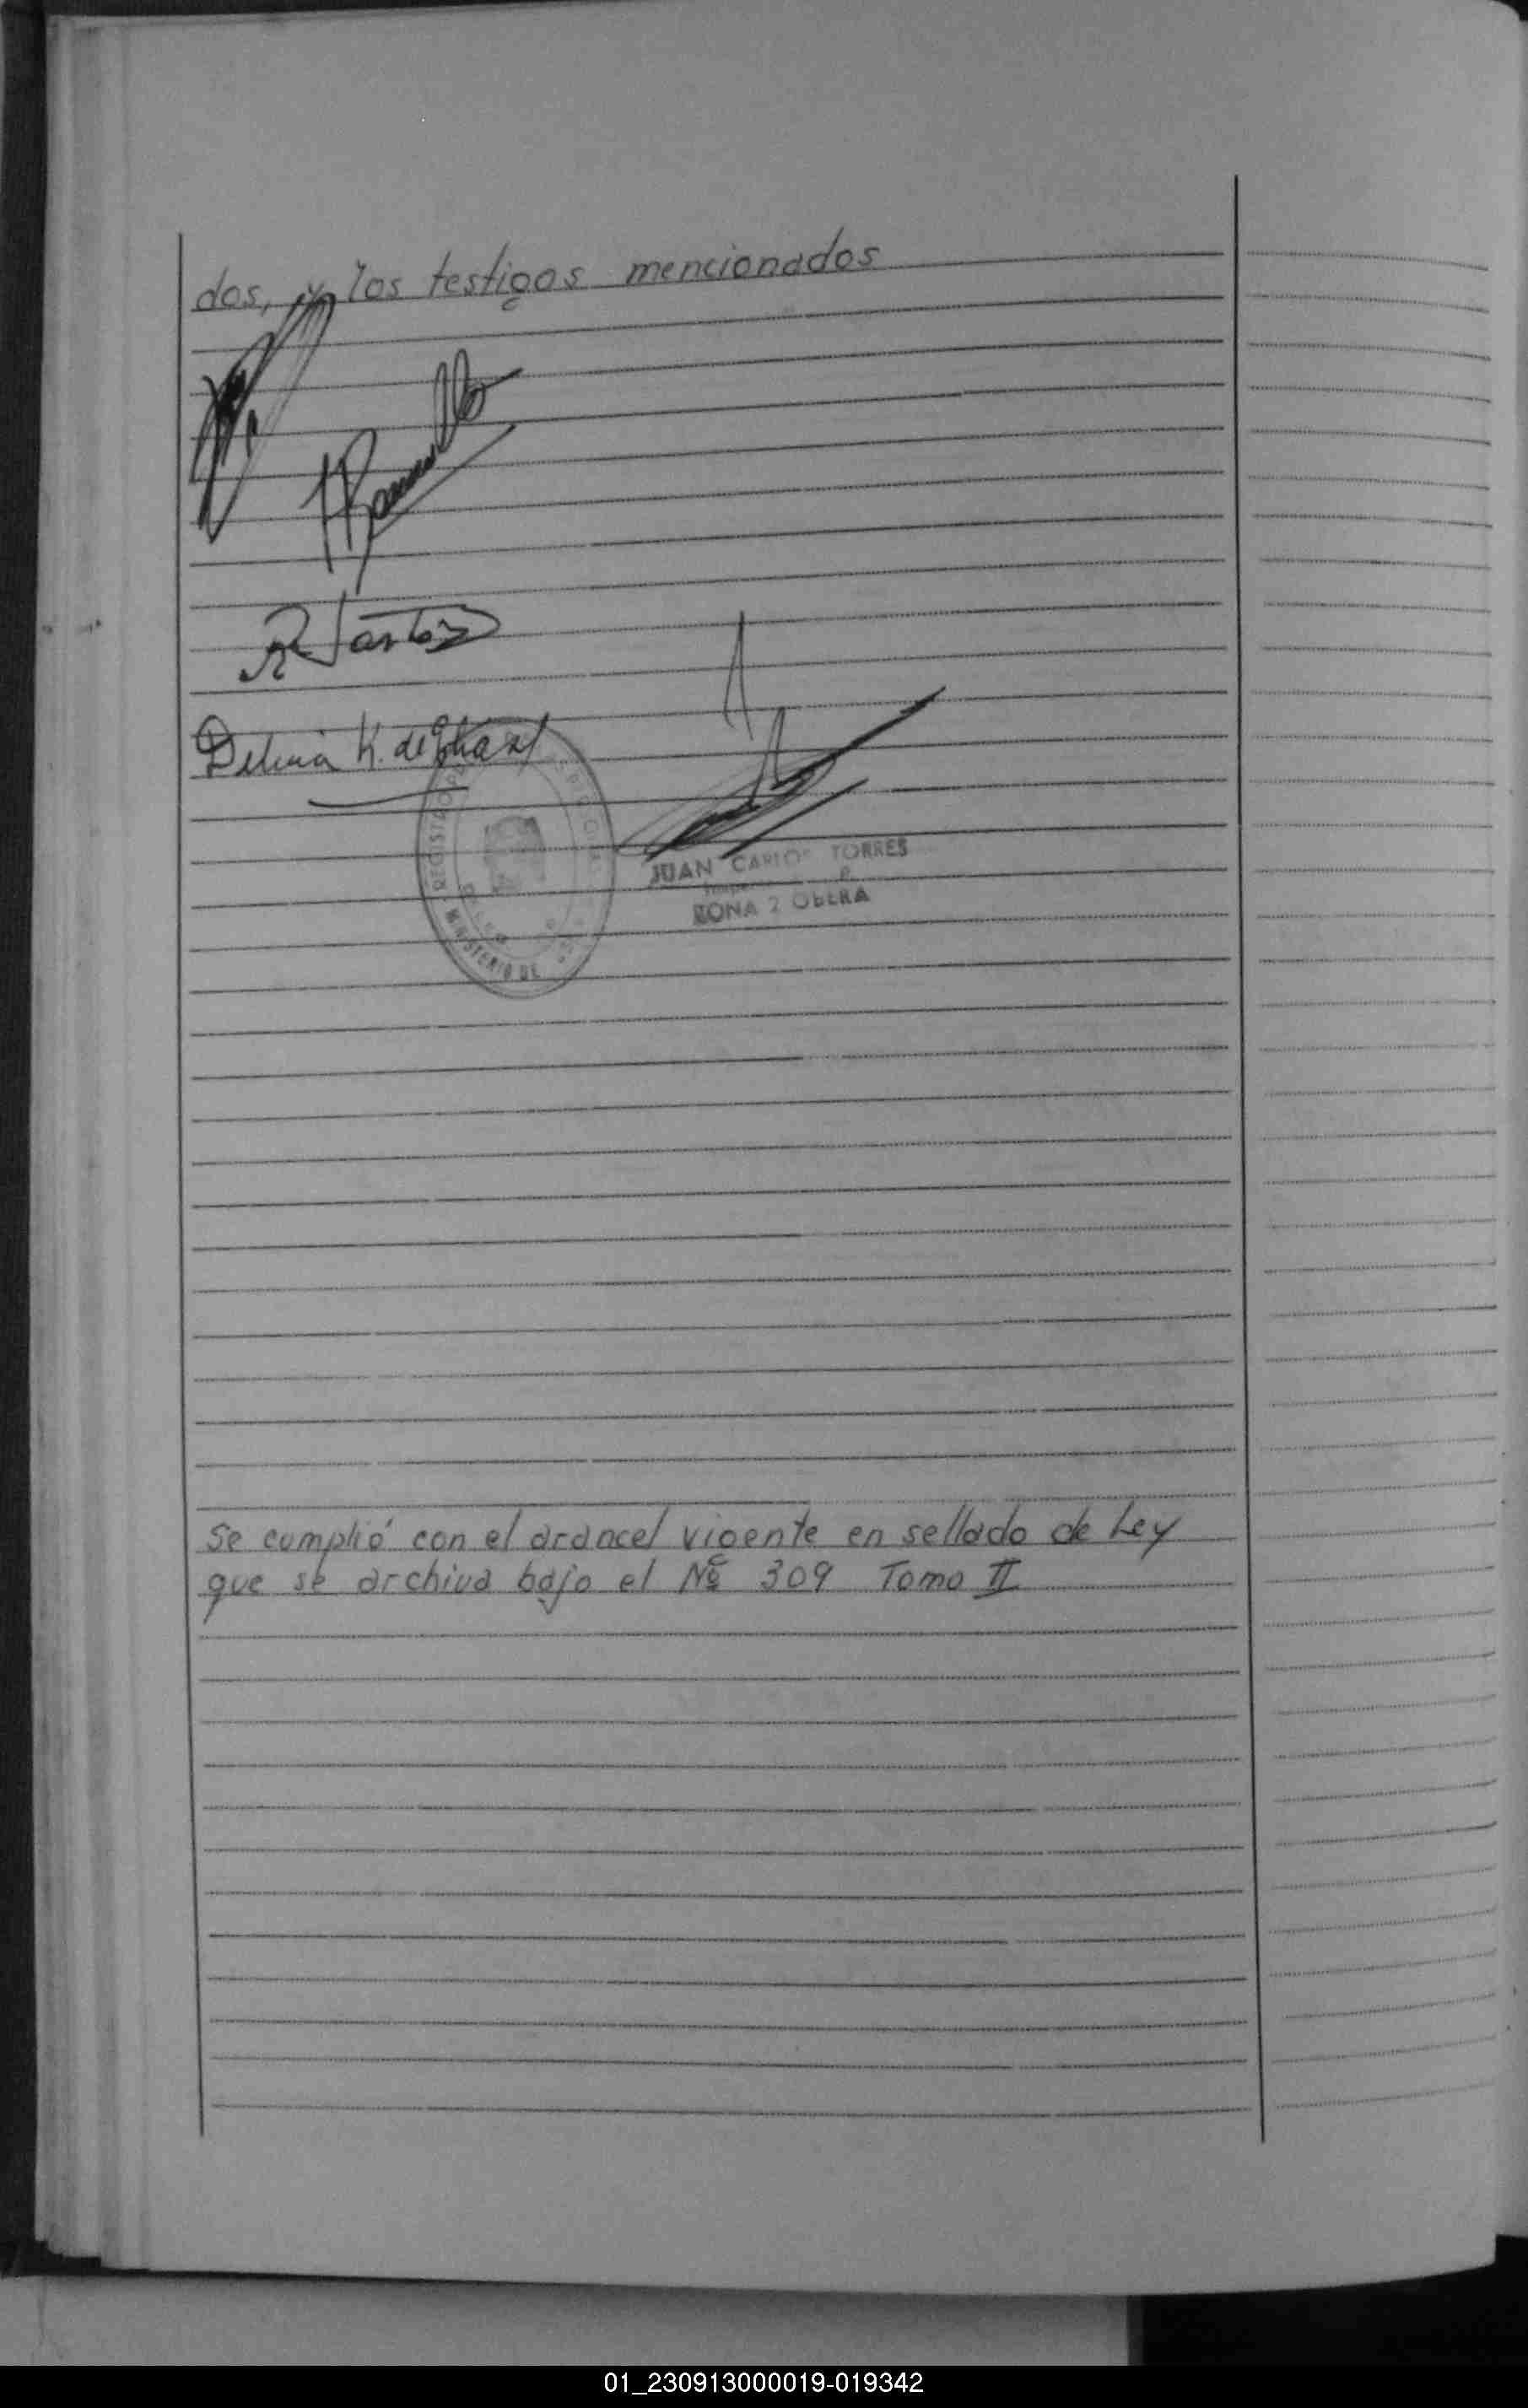 dos, y los testigos mencionados
R Santos
Delicia K. de
REGISTRO
MINISTERIO DE
JUAN CARLOS TORRES
ZONA 2 OBERA
Se cumplió con el arancel vigente en sellado de Ley
que se archiva bajo el Nº 309 Tomo II
01_230913000019-019342